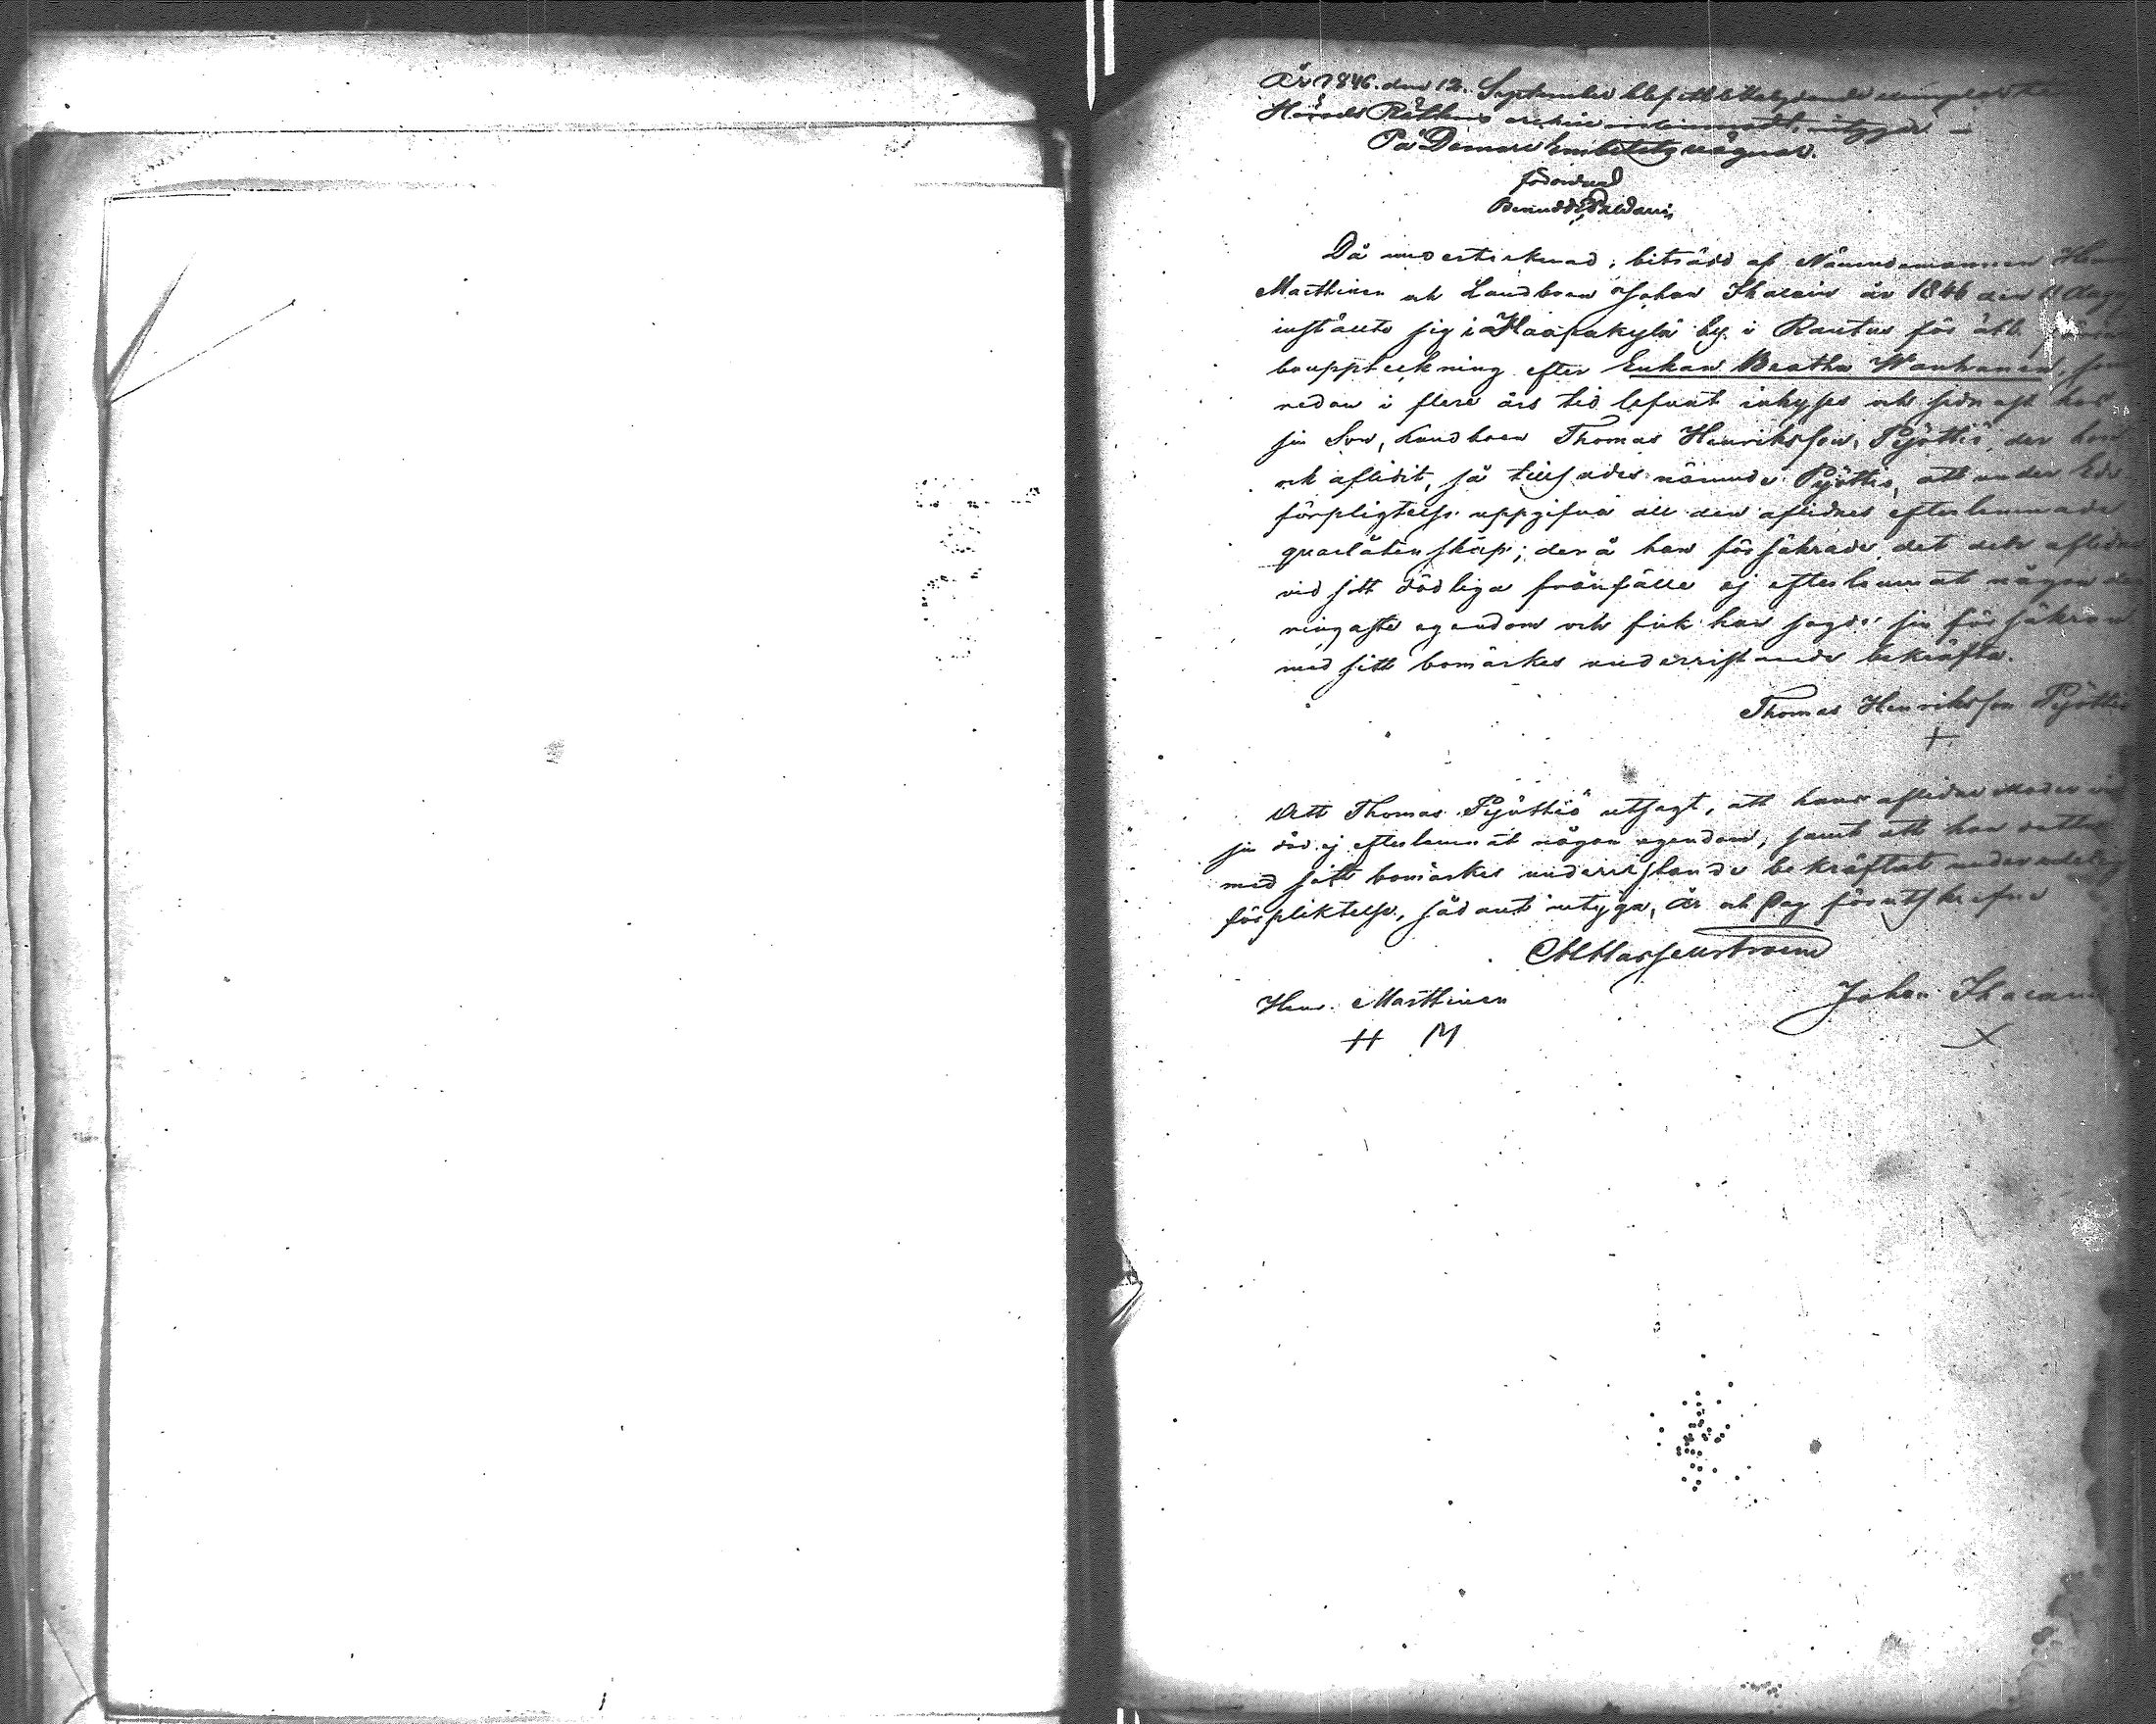 År 1846. den 12. September blef ett likalydande exemplar till
Härads Rättens archiv inlemnadt, intygar
På Domare Embetets vägnar.
förordnad
Då undertecknad, biträdd af Nämndemannen Henr
Marthinen och Landboen Johan Ikäiain år 1846 den 11 Augusti
instälte sig i Haapakylä by i Rautus för att
bouppteckning efter Enkan Beatha Wanhanen, som
redan i flere års tid lefvat inhyses och sednast hos
sin Son, Landboen Thomas Henriksson Pyöttiö, der hon
ock aflidit, så tillsades nämnde Pyöttiö, att under Eds
förpligtelse uppgifva all den aflidnes efterlemnade
qvarlåtenskap; derå han försäkrade det den aflidna
vid sitt dödliga frånfälle ej efterlemnat någon den
ringaste egendom och fick han sagde sin försäkran
med sitt bomärkes underristande bekräfta.
Thomas Henriksson Pyöttiö
+
Att Thomas Pyöttiö utsagt, att hans aflidne Moder vid
sin död ej efterlemnat någon egendom, samt att han detta
med sitt bomärkes underristande bekräftat under edelig
förpliktelse, sådant intyga, År och Dag förutskrefne
Henr. Marthinen
Johan
H M
X